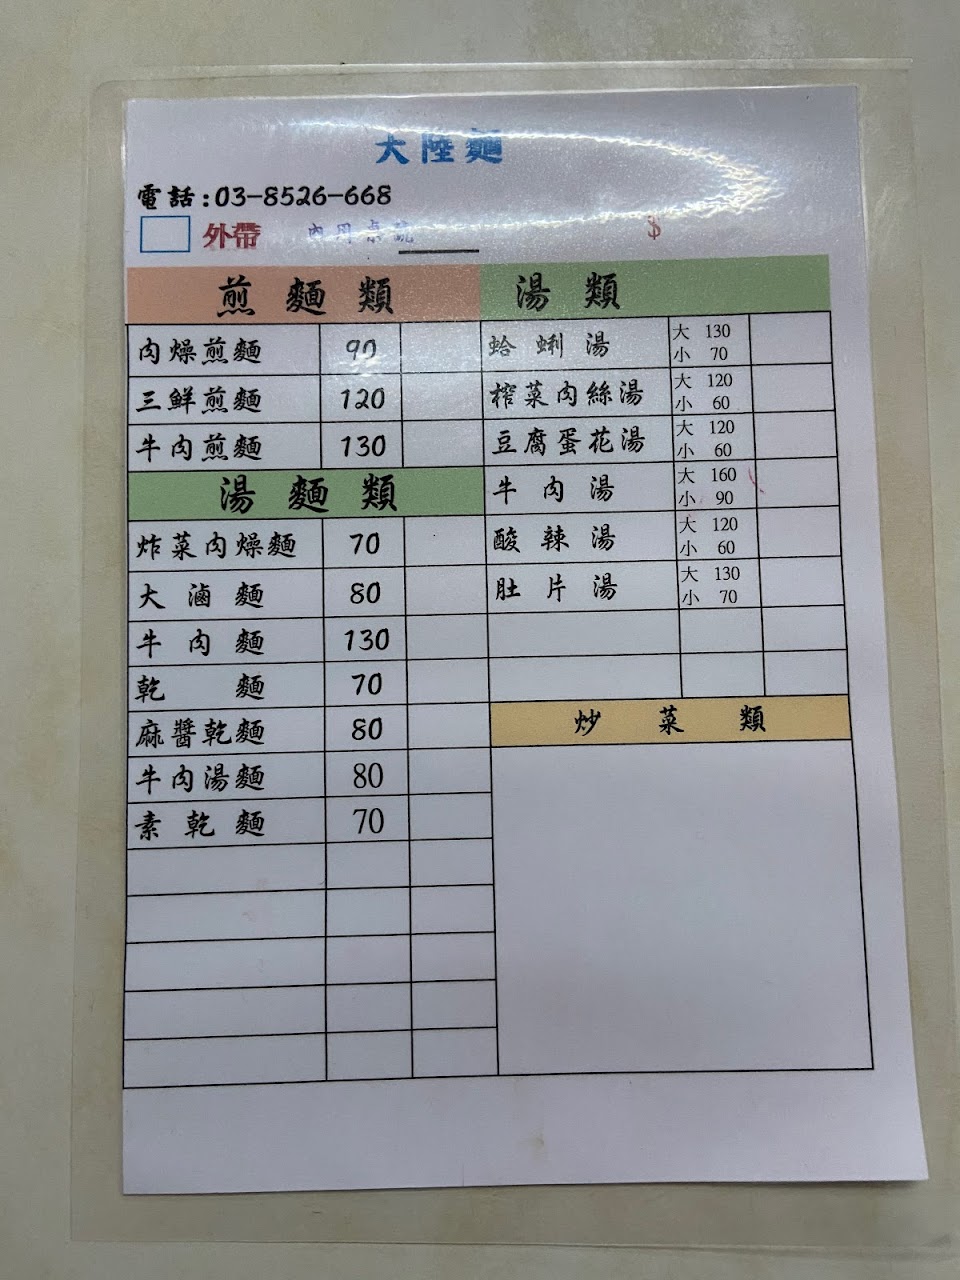 大陸麵
電話:03-8526-668
外帶 內用桌號 $
煎麵類
肉燥煎麵 90
三鮮煎麵 120
牛肉煎麵 130
湯麵類
炸菜肉燥麵 70
大滷麵 80
牛肉麵 130
乾麵 70
麻醬乾麵 80
牛肉湯麵 80
素乾麵 70
湯類
蛤蜊湯 大 130
小 70
榨菜肉絲湯 大 120
小 60
豆腐蛋花湯 大 120
小 60
牛肉湯 大 160
小 90
酸辣湯 大 120
小 60
肚片湯 大 130
小 70
炒菜類